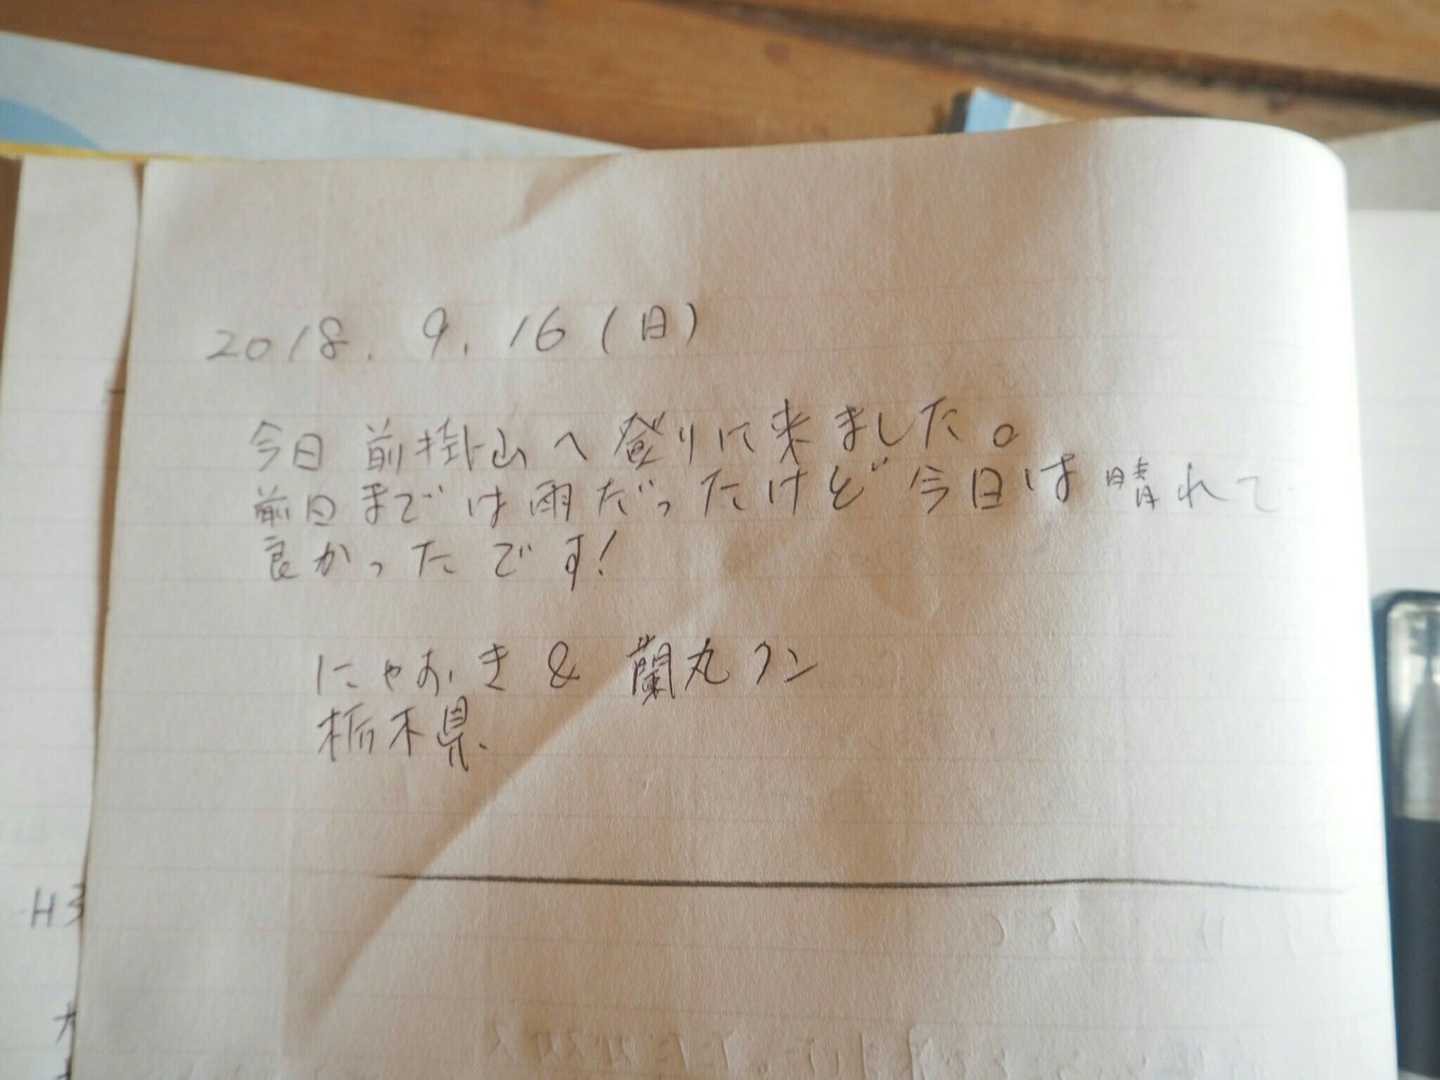 2018. 9. 16 (日)
今日前掛山へ登りに来ました。
前日までは雨だったけど今日は晴れて
良かったです!
にゃおき & 蘭丸クン
栃木県
H3